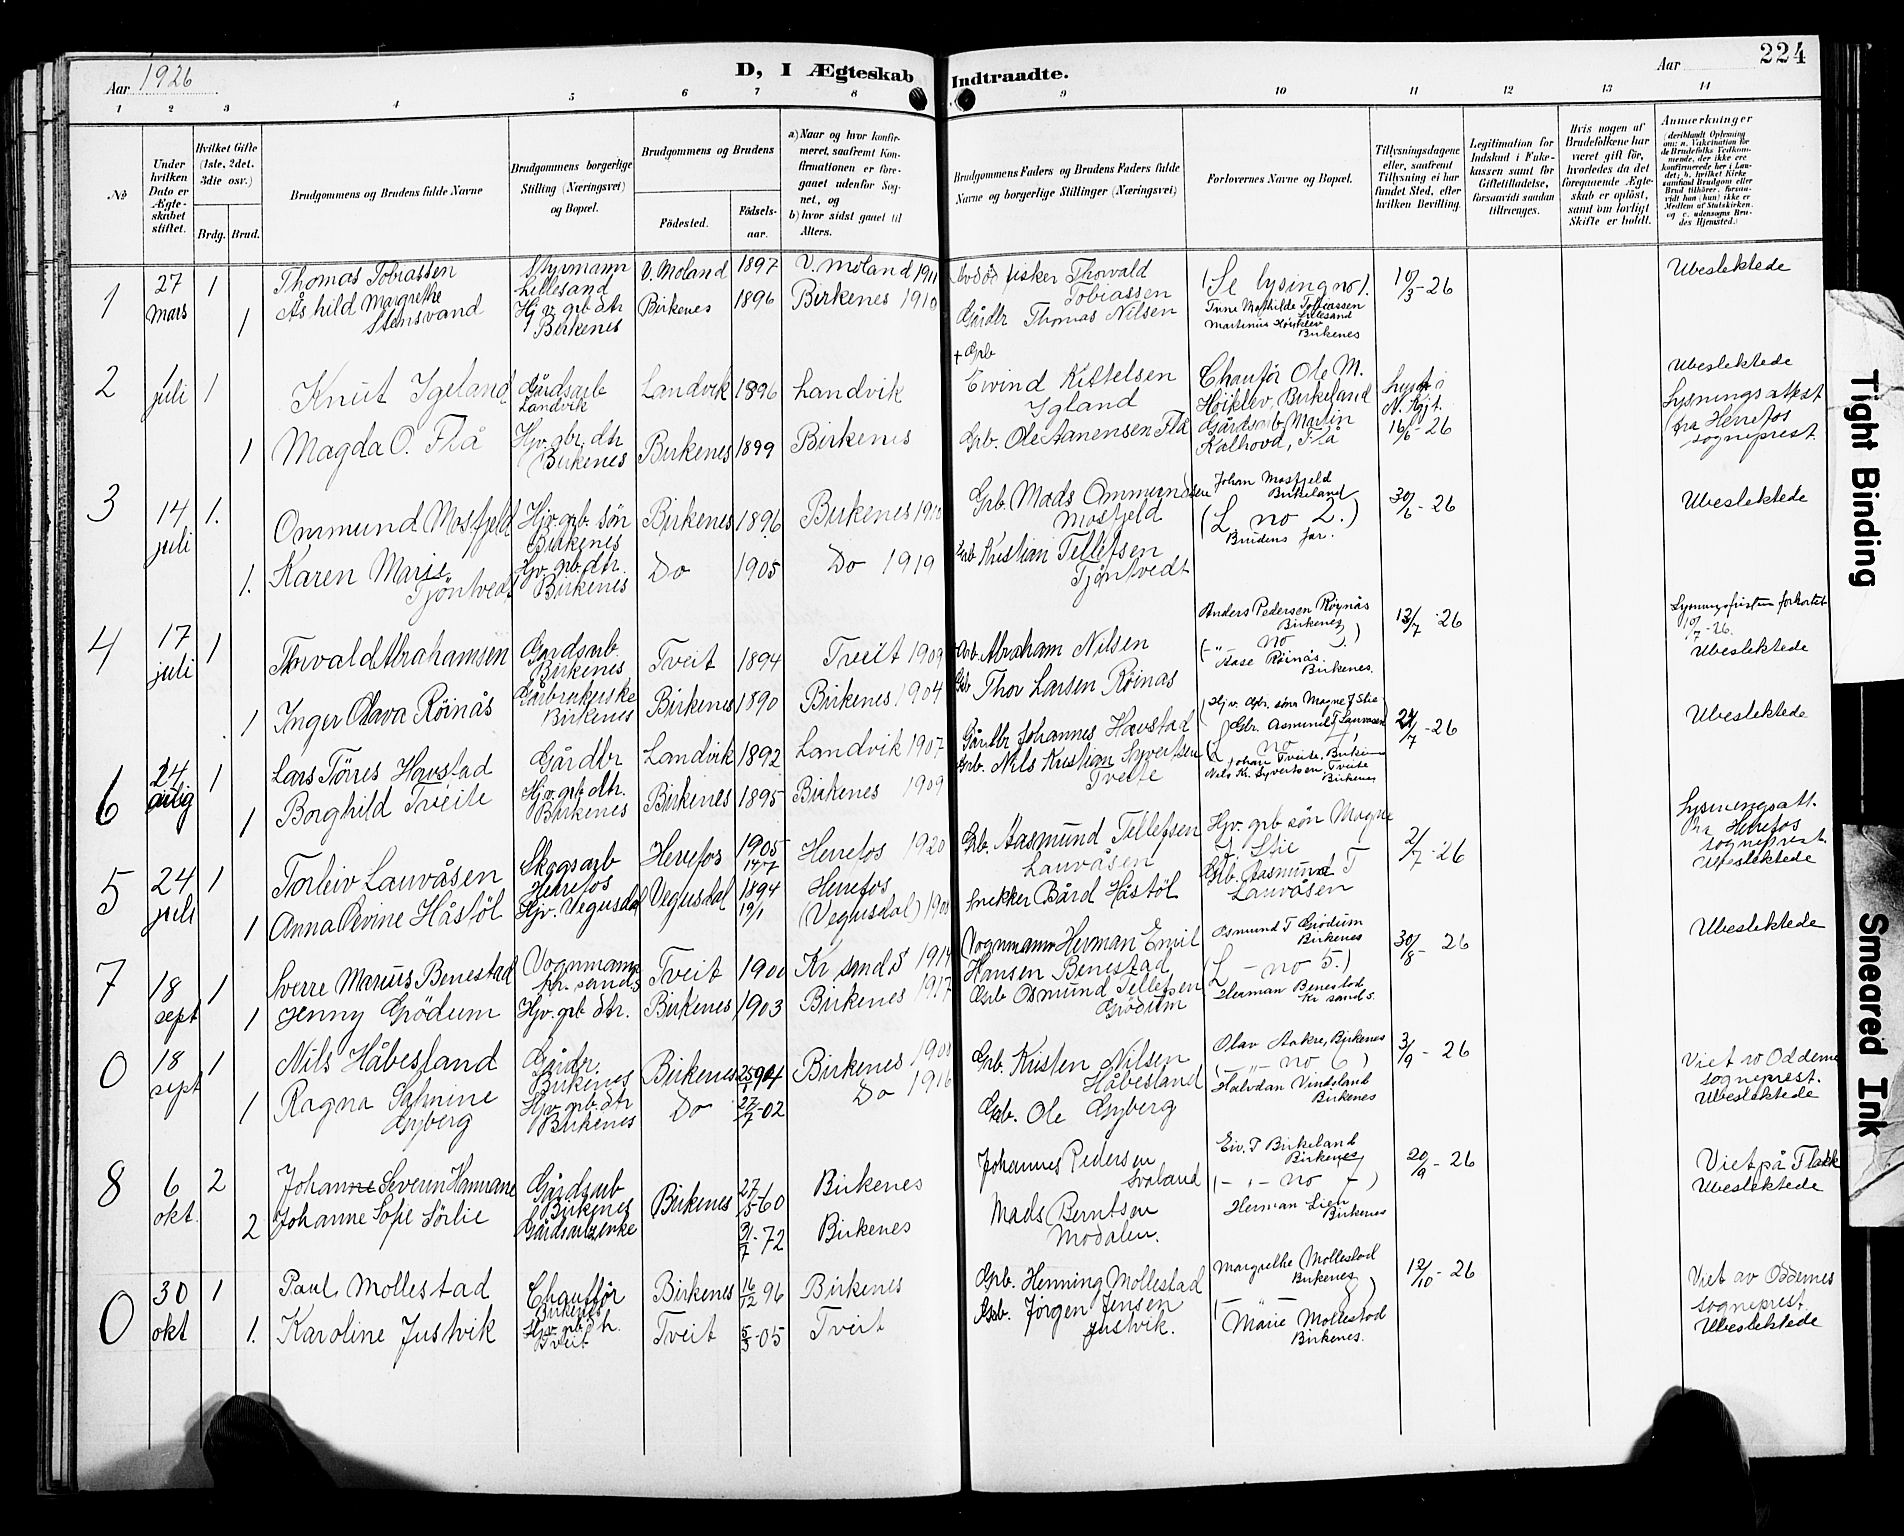 Aar 1926
D, I Ægteskab Indtraadte.
Aar 224
1 2 3 4 5 6 7 8 9 10 11 12 13 14
No
Under hvilken Dato er Ægteskabet stiftet.
Hvilket Gifte (1ste, 2det, 3die osv.)
Brdg. Brud.
Brudgommens og Brudens fulde Navne
Brudgommens borgerlige Stilling (Næringsvei) og Bopæl.
Brudgommens og Brudens
Fødested.
Fødselsaar.
a) Naar og hvor konfirmeret, saafremt Konfirmationen er foregaaet udenfor Sognet, og
b) hvor sidst gaaet til Alters.
Brudgommens Faders og Brudens Faders fulde Navne og borgerlige Stillinger (Næringsvei)
Forlovernes Navne og Bopæl.
Tillysningsdagene eller, saafremt Tillysning ei har fundet Sted, efter hvilken Bevilling.
Legitimation for Indskud i Enkekassen samt for Giftetilladelse, forsaavidt saadan tiltrænges.
Hvis nogen af Brudefolkene har været gift før, hvorledes da det foregaaende Ægteskab er opløst, samt om lovligt Skifte er holdt.
Anmærkninger
(deriblandt Oplysning om: a. Vakcination for de Brudefolks Vedkommende, der ikke ere konfirmerede her i Landet; b. hvilket Kirkesamfund Brudgom eller Brud tilhører, forsaavidt han (hun) ikke er Medlem af Statskirken, og c. udensogns Brudes Hjemsted.)
1 27 Mars 1 Thomas Tobiassen Styrmann Lillesand V. Moland 1897 V. Moland 1911 fisker Thorvald Tobiassen (Se lysing no 1. 10/3-26 Ubeslektede
1 Åshild Margrethe Stensvand Hjv. grb dtr Birkenes Birkenes 1896 Birkenes 1910 Gårdbr Thomas Nilsen Tine Mathilde Tobiassen Lillesand
Birkenes
2 1 juli 1 Knut Igeland Gårdsarb Landvik Landvik 1896 Landvik + Grb Eivind Kittelsen Igland Chaufør Ole M. Høiklev, Birkeland 16/6-26 Ubeslektede
1 Magda O. Flå Hjv. gbr. dtr Birkenes Birkenes 1899 Birkenes Grb. Ole Aanensen Flå Gårdsarb Martin Kalhovd, Flå Lysningsattest fra Herefos sogneprest
3 14 juli 1. Ommund Mosfjeld Hjv. grb. søn Birkenes Birkenes 1896 Birkenes Grb. Mads Ommundsen Mosfjeld Johan Mosfjeld Birkeland 30/6-26 Ubeslektede
1. Karen Marie Tjöntvedt Hjv. grb. dtr. Birkenes Do 1905 Do 1919 Grb Kristian Tellefsen Tjöntvedt (L. no 2.) Brudens far.
4 17 juli 1 Torvald Abrahamsen Gardsarb. Birkenes Tveit 1894 Tveit 1909 Abraham Nilsen Anders Pedersen Röynås Birkenes 13/7-26 Lysningsfristen forkortet 10/7-26. Ubeslektede
1 Inger Olava Röinås Birkenes Birkenes 1890 Birkenes 1904 Grb Thor Larsen Röinas Aase Röinås. Birkenes.
6 24 1 Lars Törres Havstad Gårdbr Landvik 1892 Landvik 1907 Gårdbr Johannes Havstad 24/7-26 Ubeslektede
1 Borghild Tveite Hjv. grb dtr. Birkenes Birkenes 1895 Birkenes 1909 Grb. Nils Kristian Syvertsen Tveite Johan Tveite, Nils Kr. Syvertsen Tveite Birkenes
5 24 juli 1 Torleiv Lauvåsen Skogsarb Herefos Herefos 1905 Herefos 1920 Grb. Aasmund Tellefsen Lauvåsen Hjv. grb søn Magne J Stie 2/7-26 Lysningsatt. fra Herefos sogneprest. Ubeslektede
1 Anna Oevine Håstöl Hjv. Vegusdal Vegusdal 1894 19/1 Herefos (Vegusdal) Snekker Bård Håstöl Grb. Aasmund T Lauvåsen
7 18 sept 1 Sverre Marius Benestad Vognmann Kr. sands Tveit 1900 Kr sands Vognmann Herman Emil Hansen Benestad Osmund T Grödum Birkenes 30/8-26 Ubeslektede
1 Jenny Grödum Hjv. grb dtr. Birkenes 1903 Birkenes 1917 Grb Osmund Tellefsen Grödum (L - no 5.) Herman Benestad Kr sands.
0 18 sept 1 Nils Håbesland Gårdbr. Birkenes Birkenes Birkenes Grb. Kristen Nilsen Håbesland Olav Aakre, Birkenes 3/9-26 Viet av Oddernes sogneprest. Ubeslektede
1 Ragna Gyberg Hjv. grb. dtr Birkenes Do 27/7-02 Do 1916 Grb. Ole Gyberg Halvdan Vindsland Birkenes
8 6 okt. 2 Johannes Severin Hannane Gårdsarb Birkenes Birkenes 27/5-60 Birkenes Johannes Pedersen Svaland Eiv. T Birkeland Birkenes 20/9-26 Viet på Flakk Ubeslektede
2 Johanne Sofie Sörlie Gårdsarb.enke 31/7-72 Birkenes Mads Berntsen Modalen. (-"- no 7) Herman Lien Birkenes
0 30 okt 1 Paul Mollestad Chauffør Birkenes Birkenes 16/12 96 Birkenes Grb. Henning Mollestad Margrethe Mollestad Birkenes 12/10-26 Viet av Oddernes sogneprest. Ubeslektede
1. Karoline Justvik Hjv. grb dtr. Tveit Tveit 5/3-05 Tveit Grb. Jörgen Jensen Justvik. Marie Mollestad Birkenes.
Tight Binding
Smeared Ink